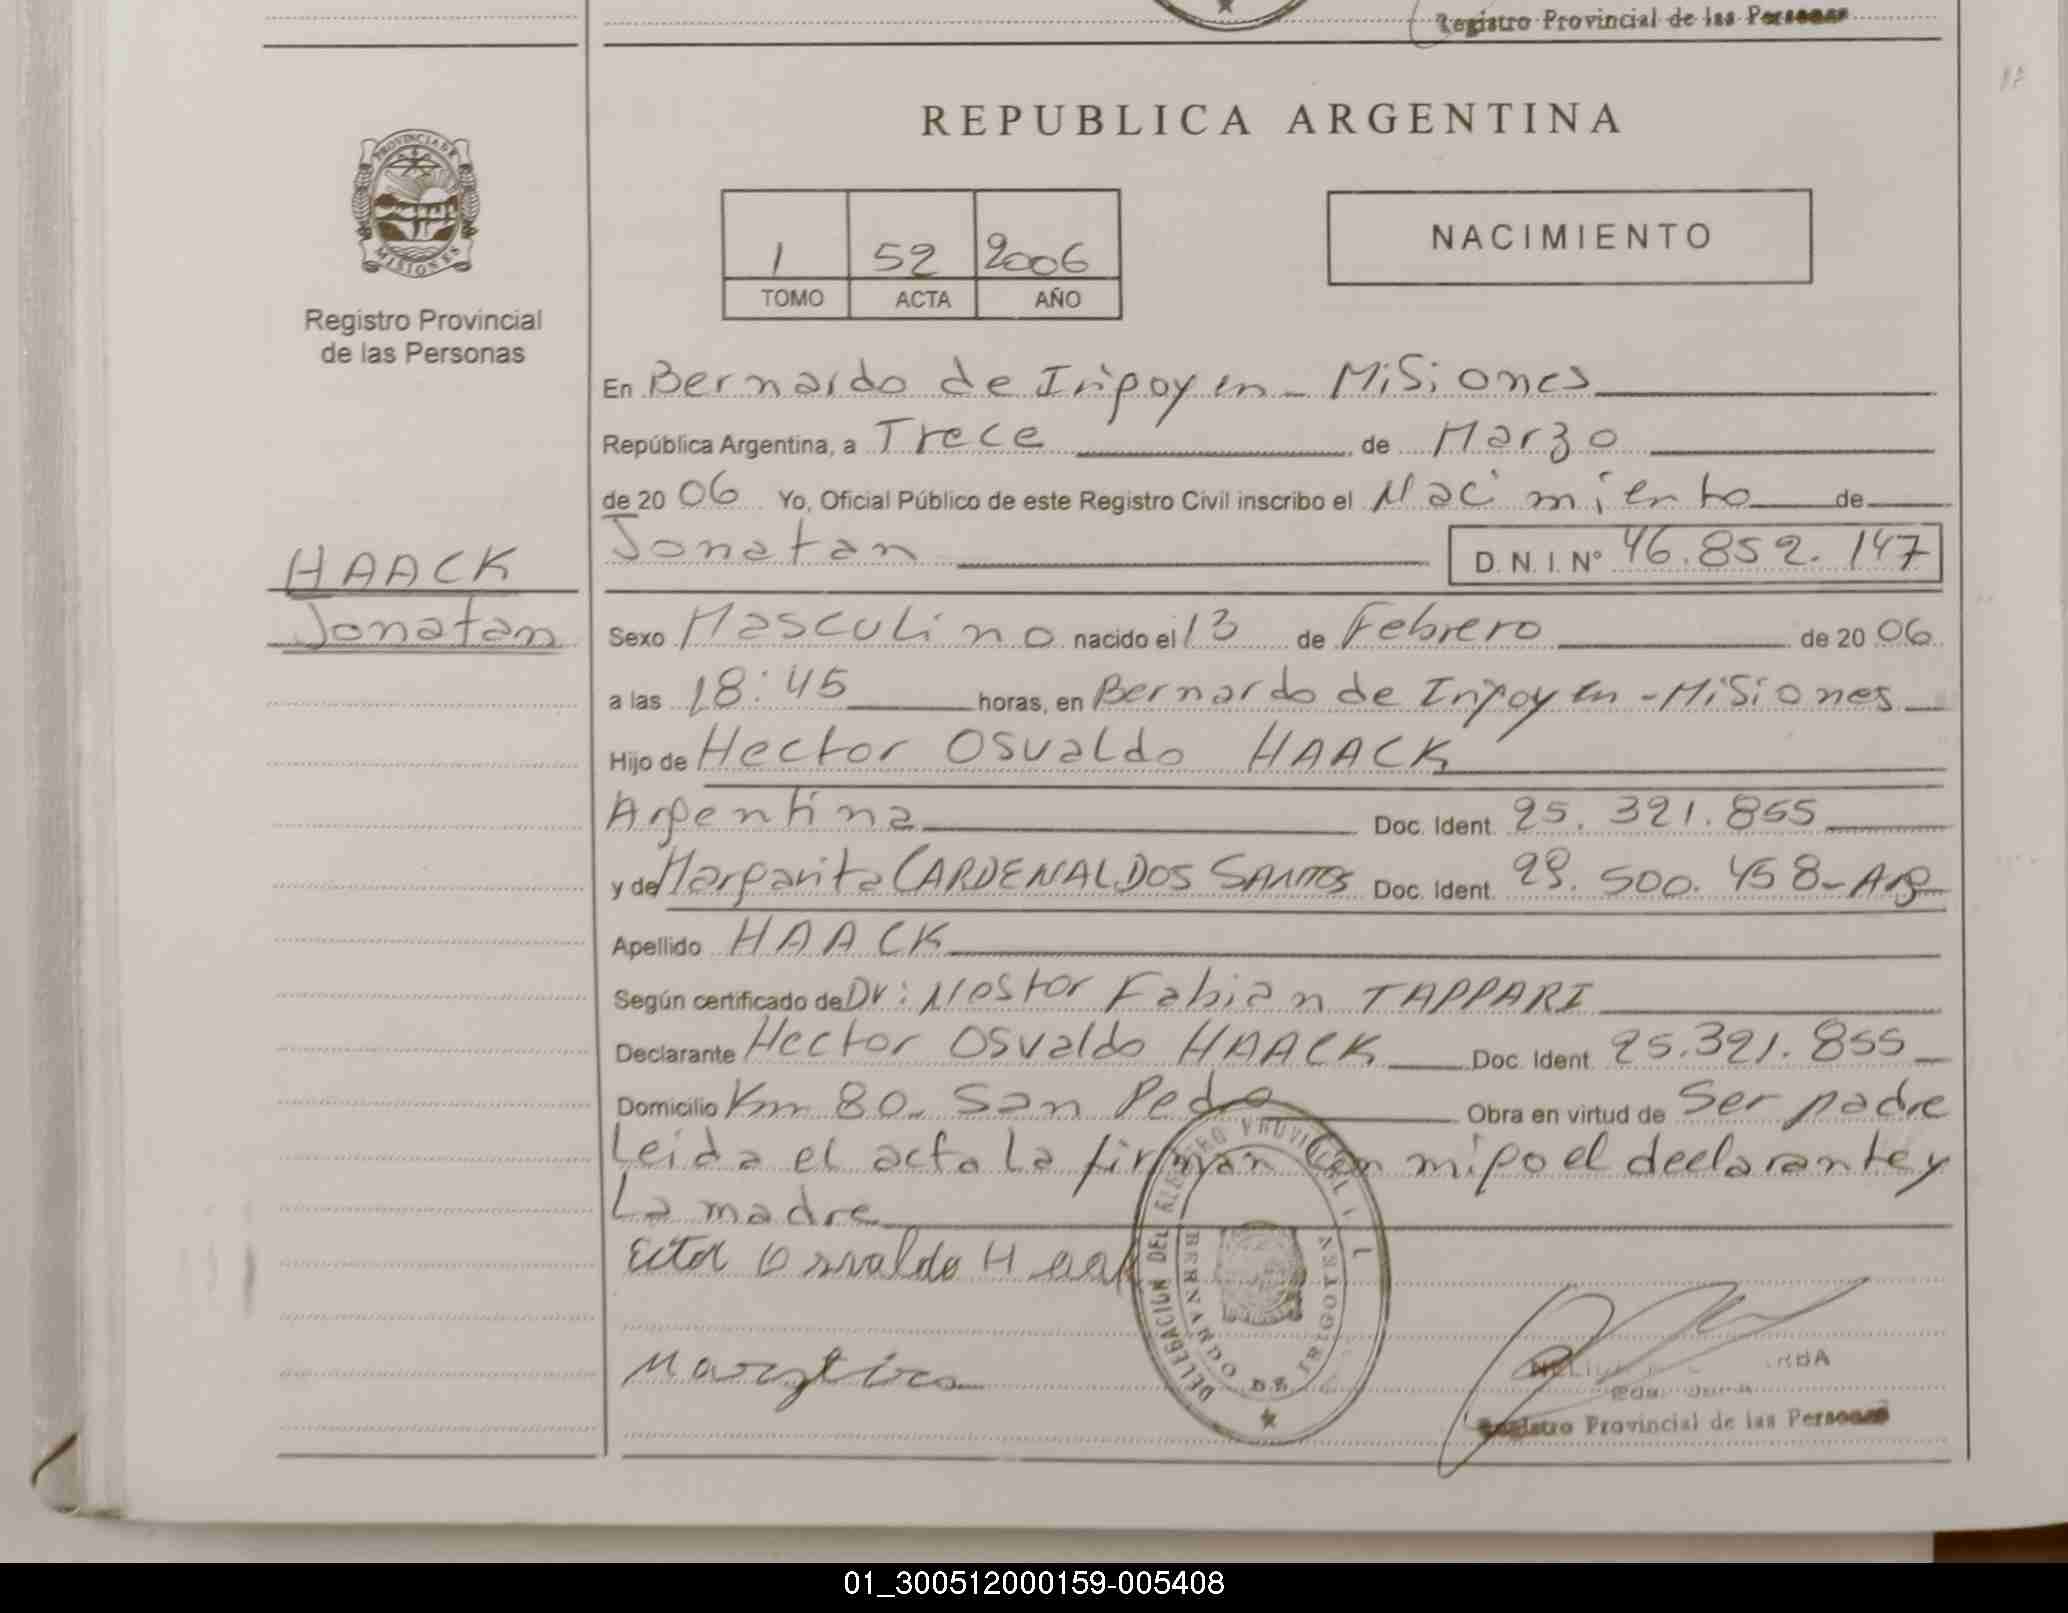 Registro Provincial de las Personas
REPUBLICA ARGENTINA
PROVINCIA DE
MISIONES
Registro Provincial
de las Personas
1 52 2006
TOMO ACTA AÑO
NACIMIENTO
En Bernardo de Irigoyen - Misiones
República Argentina, a Trece de Marzo
de 20 06 Yo, Oficial Público de este Registro Civil inscribo el Nacimiento de
Jonatan D. N. I. Nº 46.852.147
HAACK
Jonatan
Sexo Masculino nacido el 13 de Febrero de 20 06
a las 18:45 horas, en Bernardo de Irigoyen - Misiones
Hijo de Hector Osvaldo HAACK
Argentina Doc. Ident. 25.321.855
y de Margarita CARDENAL DOS SANTOS Doc. Ident. 29.500.458 - Arg
Apellido HAACK
Según certificado de Dr: Nestor Fabian TAPPARI
Declarante Hector Osvaldo HAACK Doc. Ident. 25.321.855
Domicilio Km 80 - San Pedro Obra en virtud de Ser padre
Leida el acta la firman con migo el declarante y
La madre
Osvaldo
DELEGACION DEL
BERNARDO DE IRIGOYEN
Registro Provincial de las Personas
01_300512000159-005408